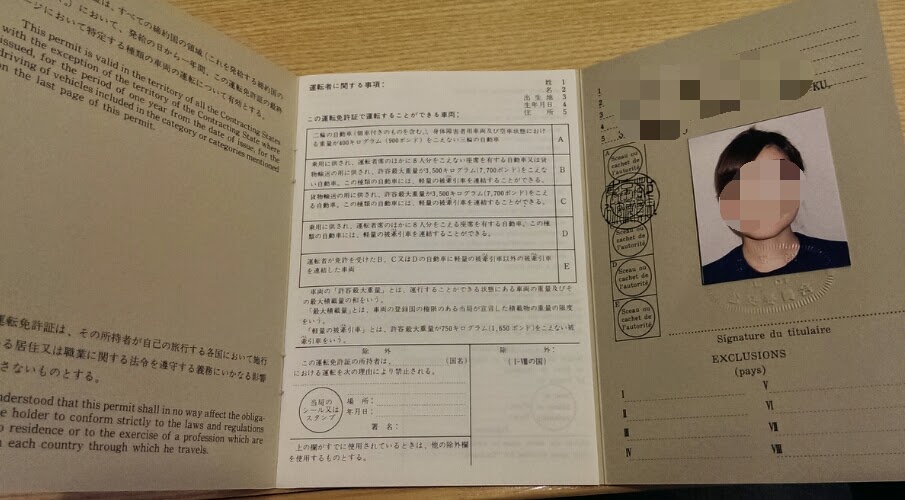 は、すべての締約国の領域(これを発給する締約国の
において、発給の日から一年間、この運転免許証の最終
ージにおいて特定する種類の車両の運転について有効とする。
This permit is valid in the territory of all the Contracting States
with the exception of the territory of the Contracting State where
issued, for the period of one year from the date of issue, for the
driving of vehicles included in the category or categories mentioned
on the last page of this permit.
運転免許証は、その所持者が自己の旅行する各国において施行
る居住又は職業に関する法令を遵守する義務にいかなる影響
さないものとする。
nderstood that this permit shall in no way affect the obliga-
e holder to conform strictly to the laws and regulations
o residence or to the exercise of a profession which are
n each country through which he travels.
運転者に関する事項:
姓 1
名 2
出生地 3
生年月日 4
住所 5
この運転免許証で運転することができる車両:
二輪の自動車(側車付きのものを含む。)、身体障害者用車両及び空車状態にお
ける重量が400キログラム(900ポンド)をこえない三輪の自動車
A
乗用に供され、運転者席のほかに8人分をこえない座席を有する自動車又は貨
物輸送の用に供され、許容最大重量が3,500キログラム(7,700ポンド)をこえな
い自動車。この種類の自動車には、軽量の被牽引車を連結することができる。
B
貨物輸送の用に供され、許容最大重量が3,500キログラム(7,700ポンド)をこえ
る自動車。この種類の自動車には、軽量の被牽引車を連結することができる。
C
乗用に供され、運転者席のほかに8人分をこえる座席を有する自動車。この種
類の自動車には、軽量の被牽引車を連結することができる。
D
運転者が免許を受けたB、C又はDの自動車に軽量の被牽引車以外の被牽引車
を連結した車両
E
車両の「許容最大重量」とは、運行することができる状態にある車両の重量及びそ
の最大積載量の和をいう。
「最大積載量」とは、車両の登録国の権限のある当局が宣言した積載物の重量の限度
をいう。
「軽量の被牽引車」とは、許容最大重量が750キログラム(1,650ポンド)をこえない被
牽引車をいう。
除外
この運転免許証の所持者は、 (国名)
における運転を次の理由により禁止される。
当局の
シール又は
スタンプ
場所:
年月日:
署名:
上の欄がすでに使用されているときは、他の除外欄
を使用するものとする。
除外:
(I-VIIIの国)
1
2
3
4
5
KU,
A
Sceau ou
cachet de
l'autorité
cachet de
l'autorité
D
Sceau ou
cachet de
l'autorité
E
Sceau ou
cachet de
l'autorité
Signature du titulaire
EXCLUSIONS
(pays)
I
II
III
IV
V
VI
VII
VIII